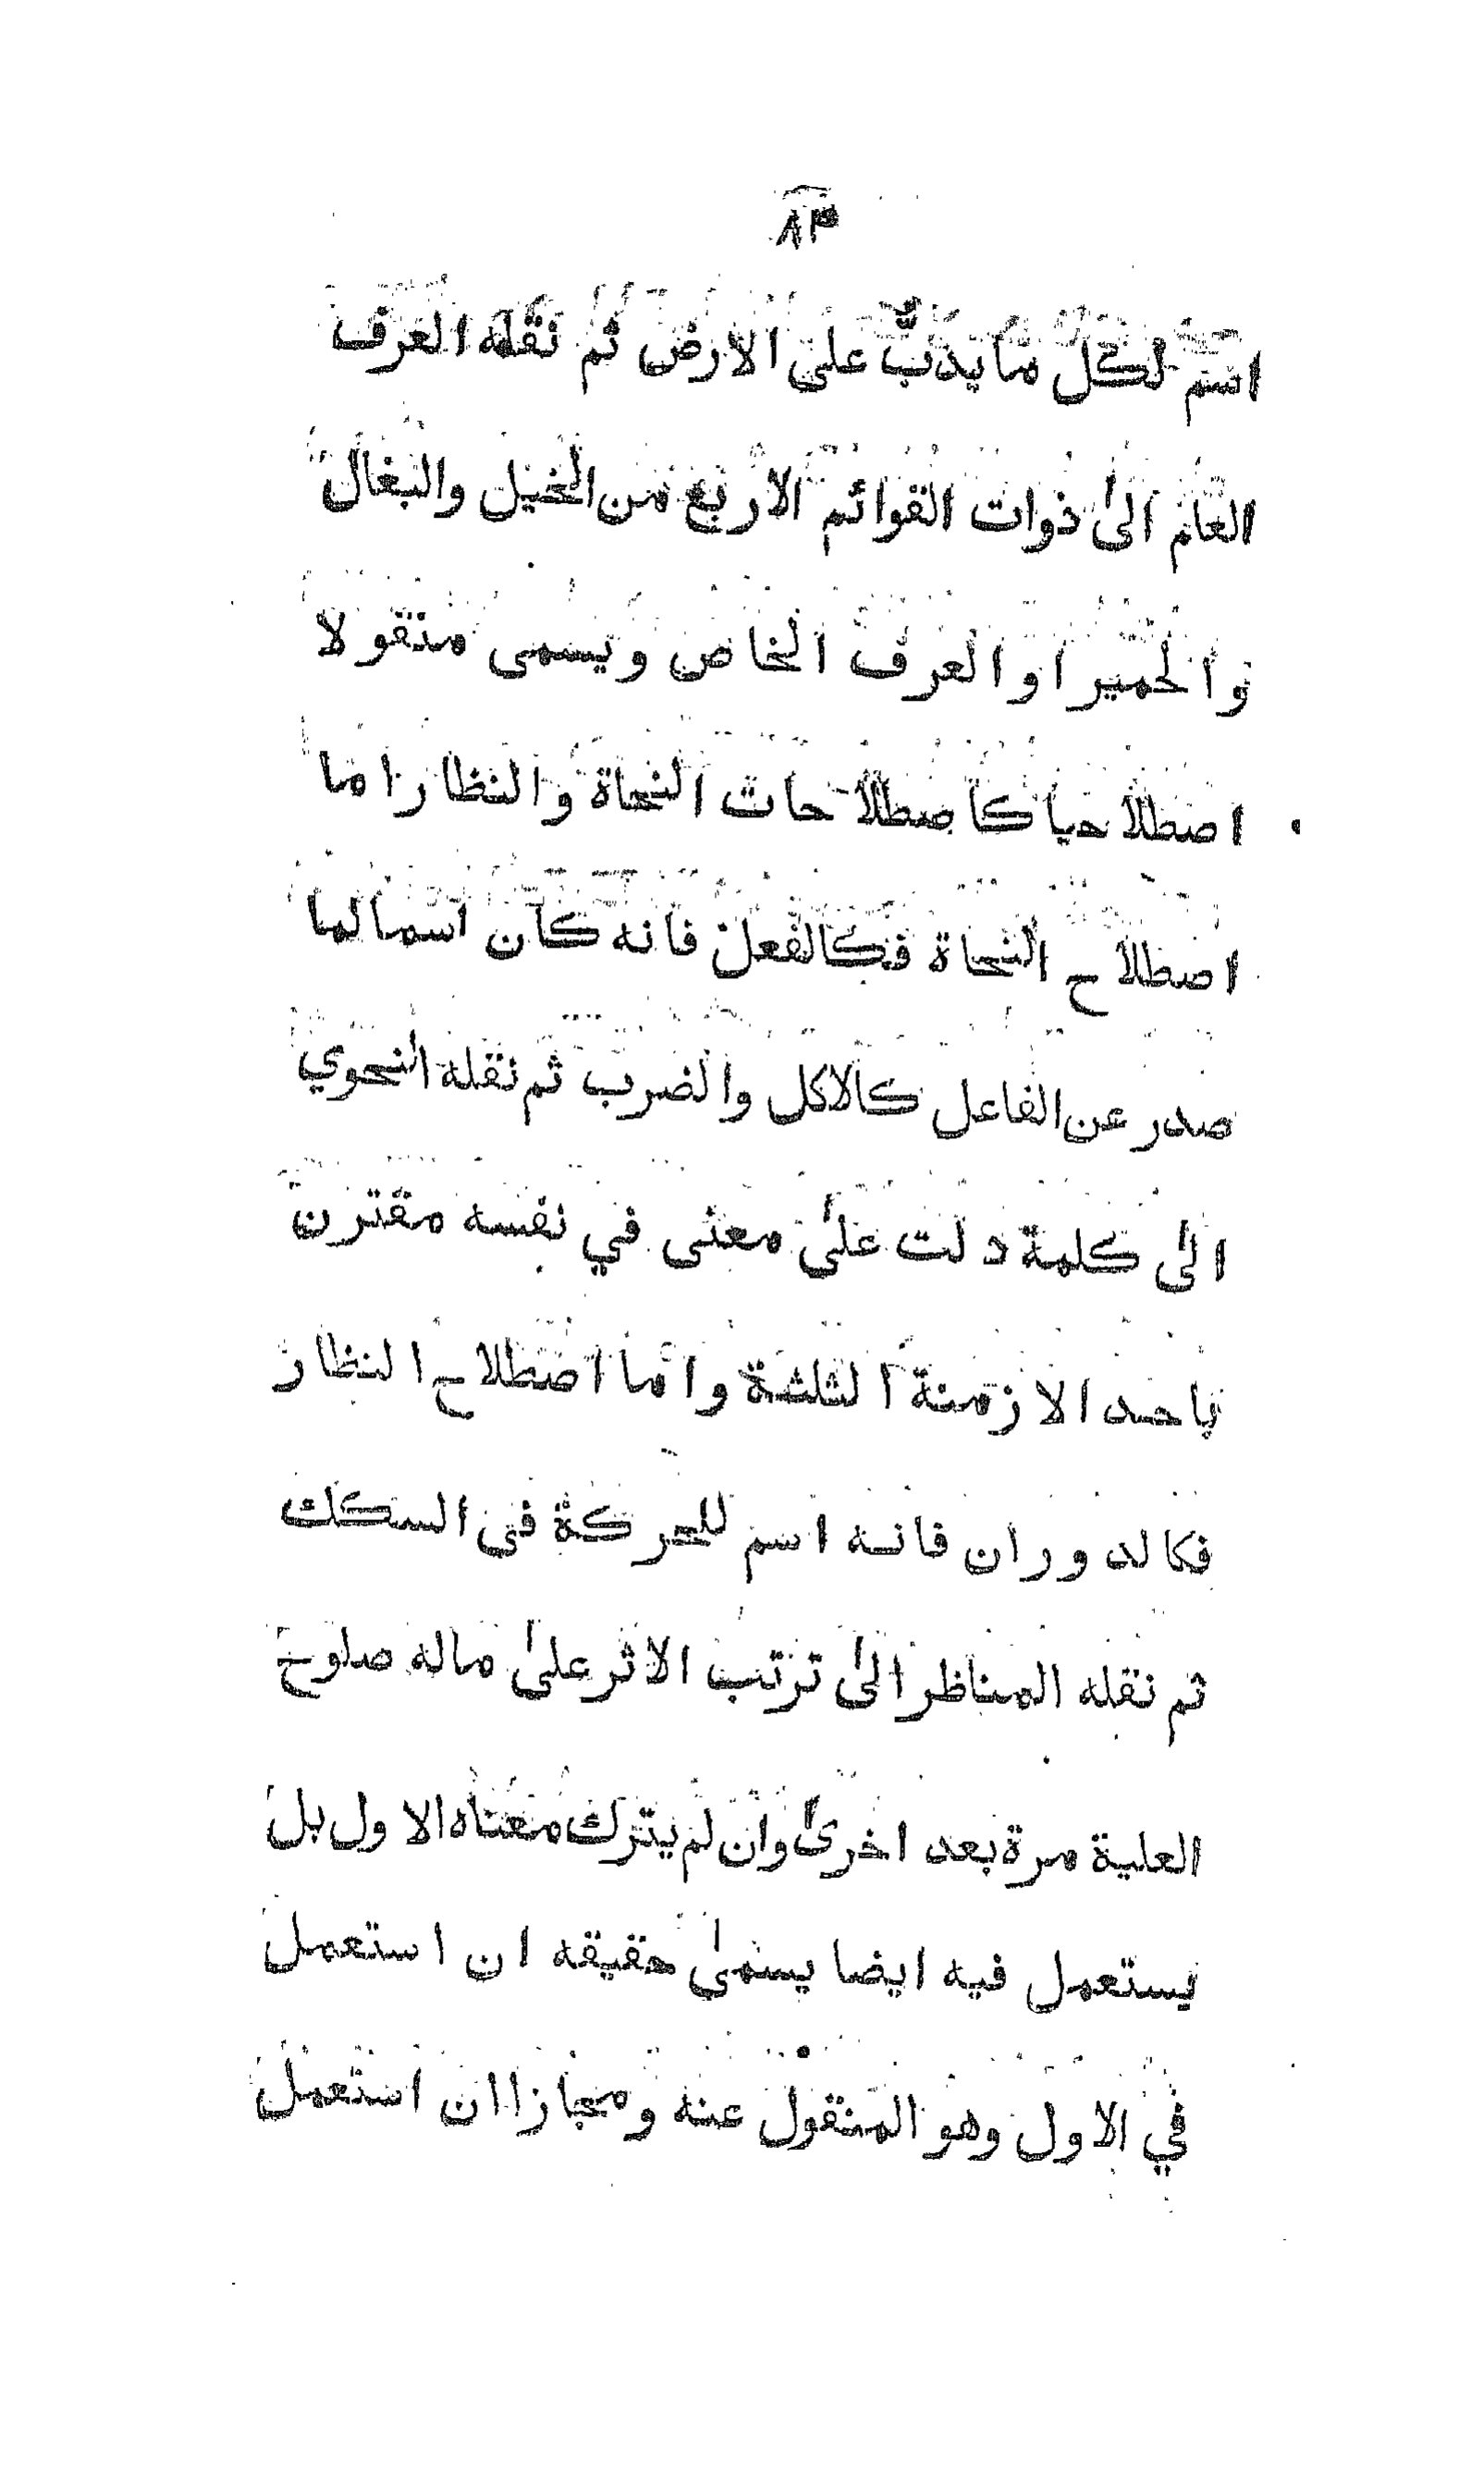 ٨٣
اسم لكل ما يدبّ على الارض ثم نقله العرف
العام الى ذوات القوائم الاربع من الخيل والبغال
والحمير او العرف الخاص ويسمى منقولا
اصطلاحيا كاصطلاحات النحاة والنظار اما
اصطلاح النحاة فكالفعل فانه كان اسما لما
صدر عن الفاعل كالاكل والضرب ثم نقله النحوي
الى كلمة دلت على معنى في نفسه مقترن
باحد الازمنة الثلثة واما اصطلاح النظار
فكالدوران فانه اسم للحركة في السكك
ثم نقله المناظر الى ترتب الاثر على ماله صلوح
العلية مرة بعد اخرى وان لم يترك معناه الاول بل
يستعمل فيه ايضا يسمى حقيقه ان استعمل
في الاول وهو المنقول عنه ومجازا ان استعمل